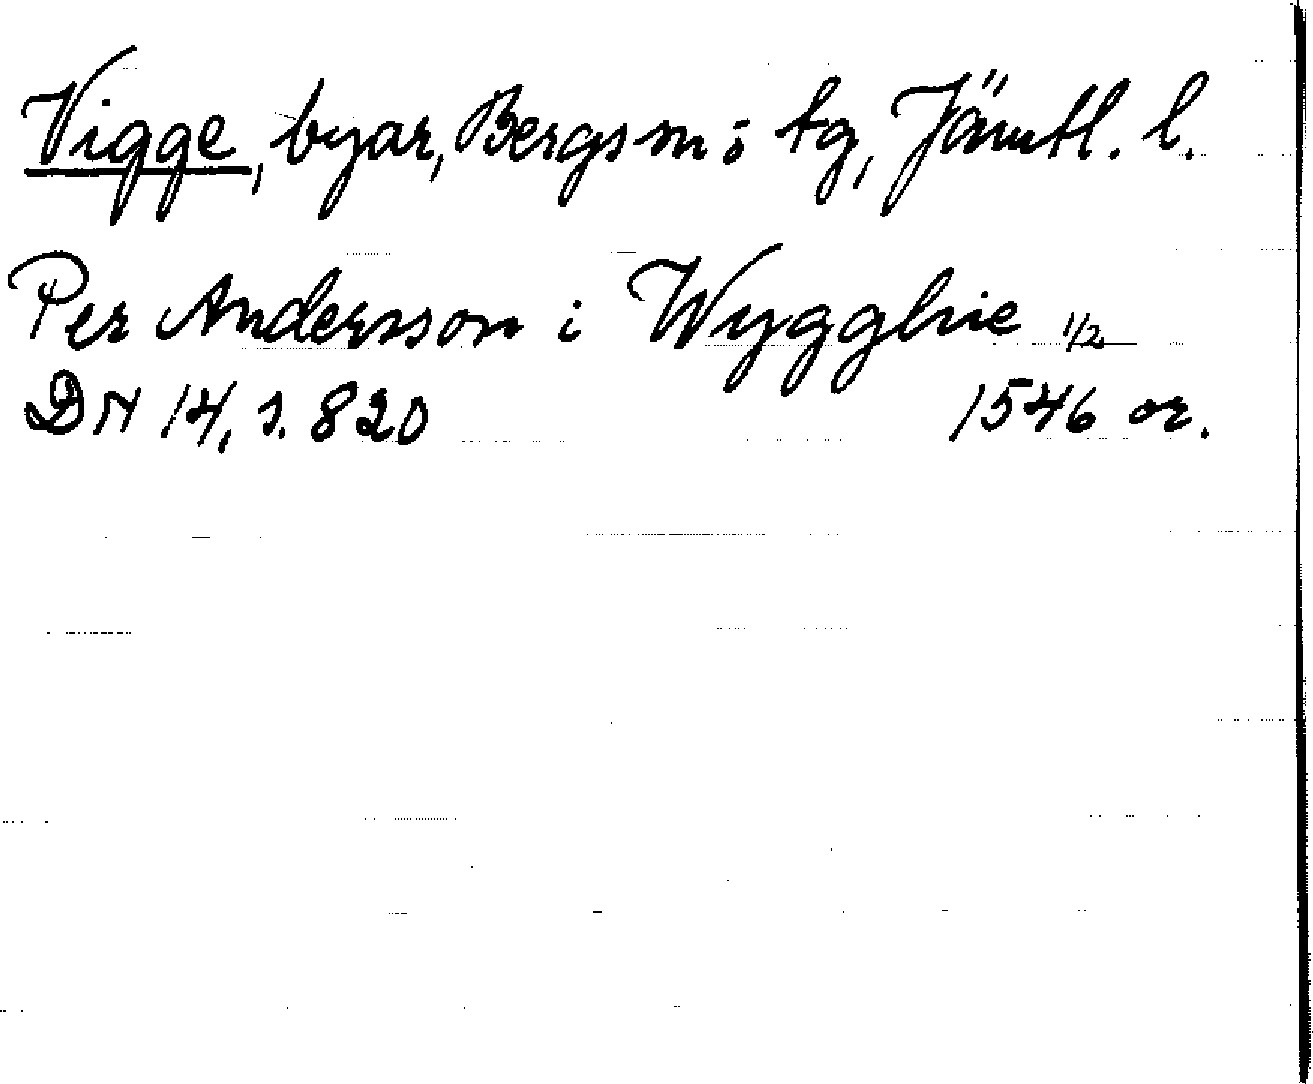 Vigge, byar, Bergs sn o tg, Jämtl. l.
Per Andersson i Wygghie 1/2
DN 14, s. 820 1546 or.